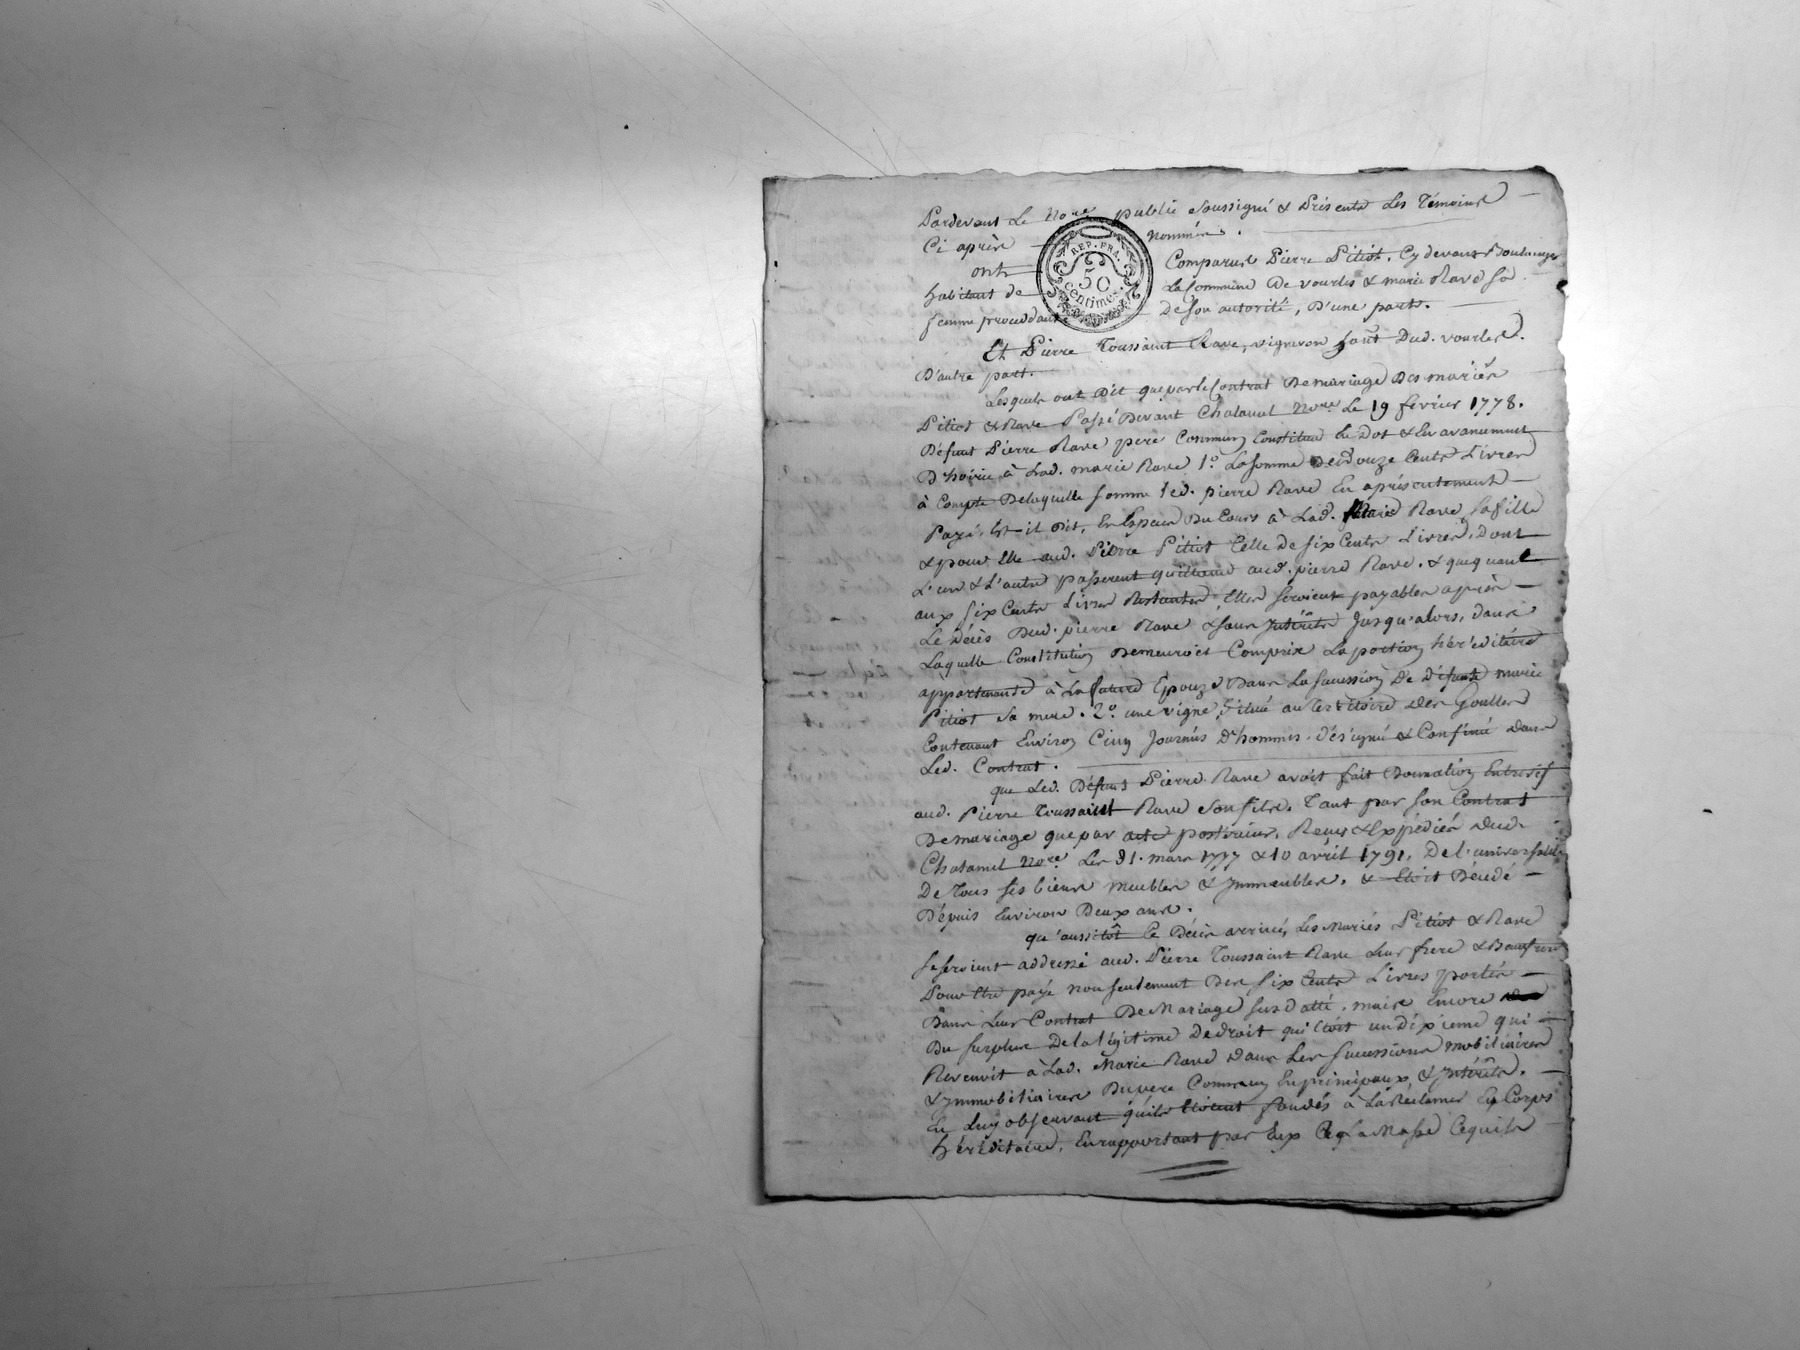 Pardevant Le No.re public soussigné & Présents Les Témoins
Ci après nommés.
REP. FRA.
50
centimes.
ont Comparus Pierre Pitiot, Cy devant Boulanger
habitant de La Commune De vourles & marie Rave sa
femme procedante De son autorité, D'une part.
Et Pierre Toussaint Rave, vigneron hant Dud. vourles.
D'autre part.
Lesquels ont Dit que par le Contrat De mariage Des mariés
Pitiot & Rave Passé Devant Chalamel No.re Le 19 fevrier 1778.
Défunt Pierre Rave pere Commun Constitua En Dot & En avancement
D'hoirie à Lad. marie Rave 1.º La somme De Douze Cents Livres
à Compte De laquelle somme led. pierre Rave En a présentement
Payé, Est-il Dit, En Espece Du Cours à Lad. Marie Rave sa fille
& pour Elle aud. Pierre Pitiot Celle de six Cents Livres, Dont
L'un & L'autre passerent quittance aud. pierre Rave. & que quant
aux six Cents Livres Restantes, Elles seroient payables après
Le Décès Dud. pierre Rave & sans Intérêts Jusqu'alors, dans
Laquelle Constitution Demeuroit Comprise La portion héréditaire
appartenante à La future Epouze Dans La succession De Défunte marie
Pitiot sa mere. 2.º une vigne, située au territoire Des Goulles
Contenant Environ Cinq Journés D'hommes, désigné & Confiné dans
Led. Contrat.
que Led. Défunt Pierre Rave avoit fait Donnation Entrevif
aud. Pierre Toussaint Rave son fils, Tant par son Contrat
De mariage que par acte postérieur, Reçus & Expédiés dud.
Chalamel No.re Les 31. mars 1777 & 10 avril 1791, De l'universalité
De Tous ses biens meubles & Immeubles, & Etoit Décédé
Dépuis Environ Deux ans.
qu'aussitôt Ce Décès arrivé, Les Mariés Pitiot & Rave
se seroient addressé aud. Pierre Toussaint Rave Leur frere & Beaufrere
Pour Etre payé non seulement Des six Cents Livres portés
Dans Leur Contrat De Mariage susdatté, mais Encore
Du surplus De la légitime De droit qui Etoit un dixieme qui
Revenoit à Lad. Marie Rave Dans Les successions mobiliaires
& Immobiliaires Du pere Commun En principaux & Intérêts.
En Luy observant qu'ils Etoient fondés à La Réclamer En Corps
héréditaire, En rapportant par Eux à La Masse Ce qu'ils